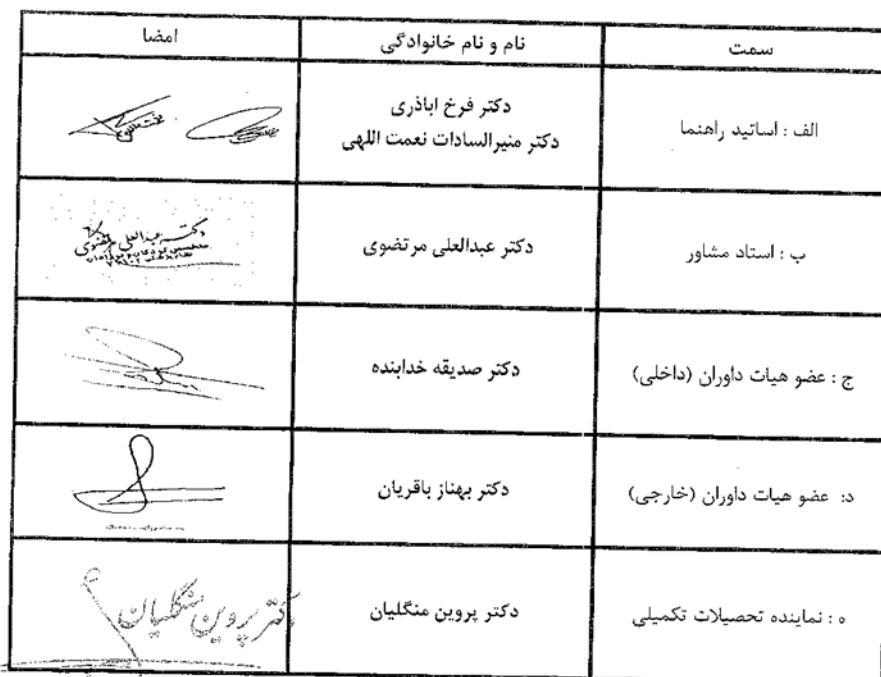 سمت نام و نام خانوادگی امضا
الف : اساتید راهنما دکتر فرخ اباذری
دکتر منیرالسادات نعمت اللهی
ب : استاد مشاور دکتر عبدالعلی مرتضوی
دکتر عبدالعلی مرتضوی
ج : عضو هیات داوران (داخلی) دکتر صدیقه خدابنده
د: عضو هیات داوران (خارجی) دکتر بهناز باقریان
ه : نماینده تحصیلات تکمیلی دکتر پروین منگلیان
دکتر پروین منگلیان